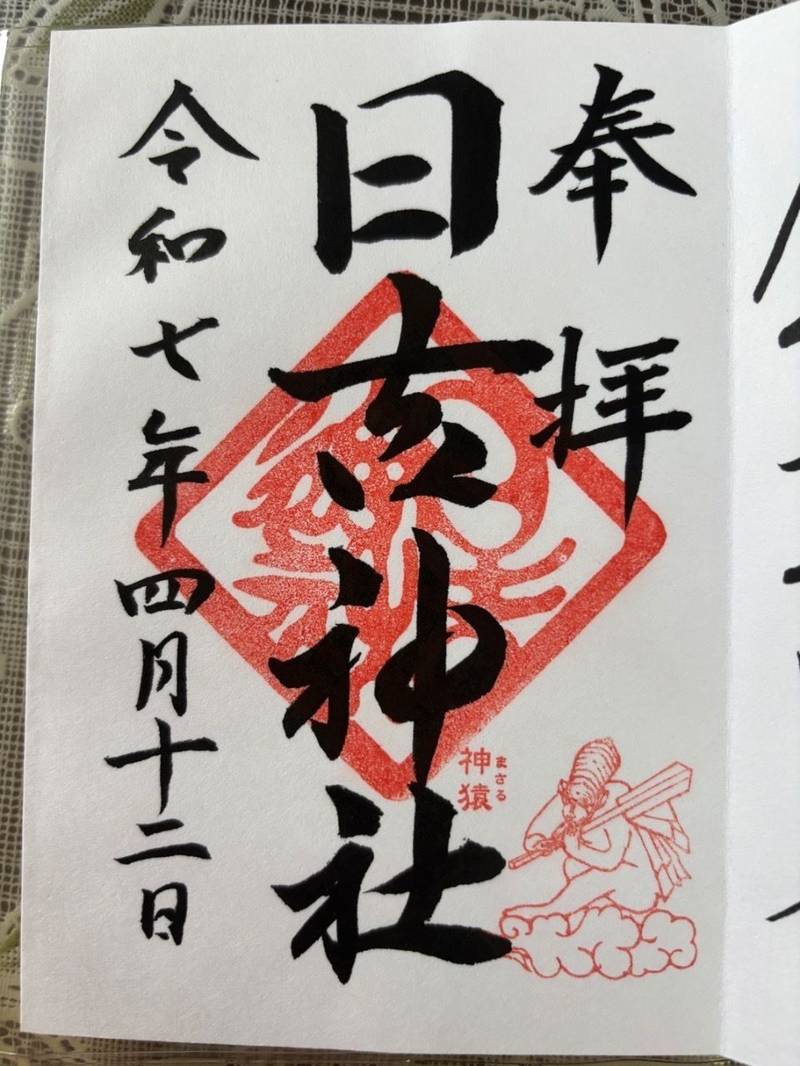 奉拝
日吉神社
神猿
まさる
令和七年四月十二日